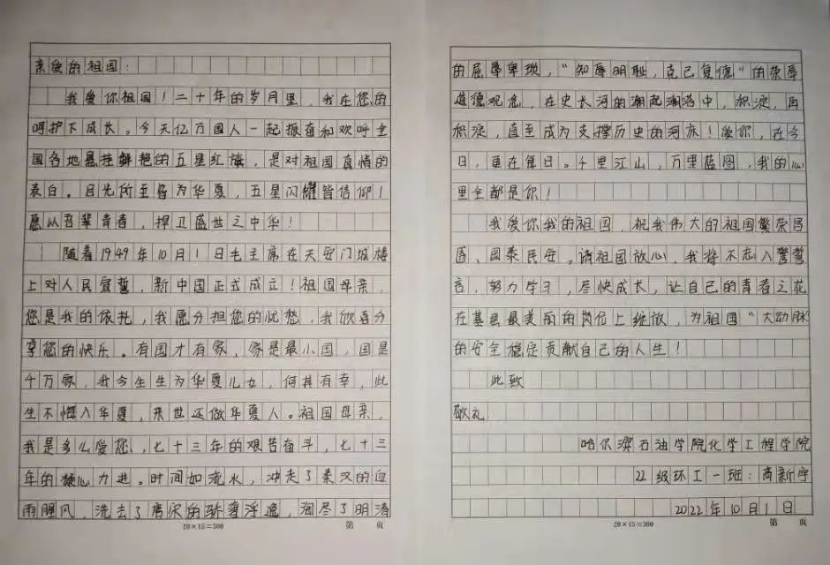 亲爱的祖国:
我爱你祖国!二十年的岁月里,我在您的
呵护下成长。今天亿万国人一起振奋和欢呼全
国各地悬挂鲜艳的五星红旗,是对祖国真情的
表白。目光所至皆为华夏,五星闪耀皆信仰!
愿以吾辈青春,捍卫盛世之中华!
随着1949年10月1日毛主席在天安门城楼
上对人民宣誓,新中国正式成立!祖国母亲,
您是我的依托,我愿分担您的忧愁,我欣喜分
享您的快乐。有国才有家,家是最小国,国是
千万家,我今生生为华夏儿女,何其有幸,此
生不悔入华夏,来世还做华夏人。祖国母亲,
我是多么爱您,七十三年的艰苦奋斗,七十三
年的 心力进。时间如流水,冲走了秦汉的血
雨腥风,洗去了唐宋的骄奢浮逸,润尽了明清
20×15=300 第 页
的屈辱卑琐,"知辱明耻,克己复德"的荣辱
道德观念,在史长河的潮起潮落中,积淀,再
积淀,直至成为支撑历史的河床!爱你,在今
日,更在每日。千里江山,万里蓝图,我的心
里全都是你!
我爱你我的祖国,祝我伟大的祖国繁荣昌
盛、国泰民安。请祖国放心,我将不忘入警誓
言,努力学习,尽快成长,让自己的青春之花
在基层最美丽的岗位上绽放,为祖国"大动脉"
的安全稳定贡献自己的人生!
此致
敬礼
哈尔滨石油学院化学工程学院
22级环工一班:高新宇
2022年10月1日
20×15=300 第 页